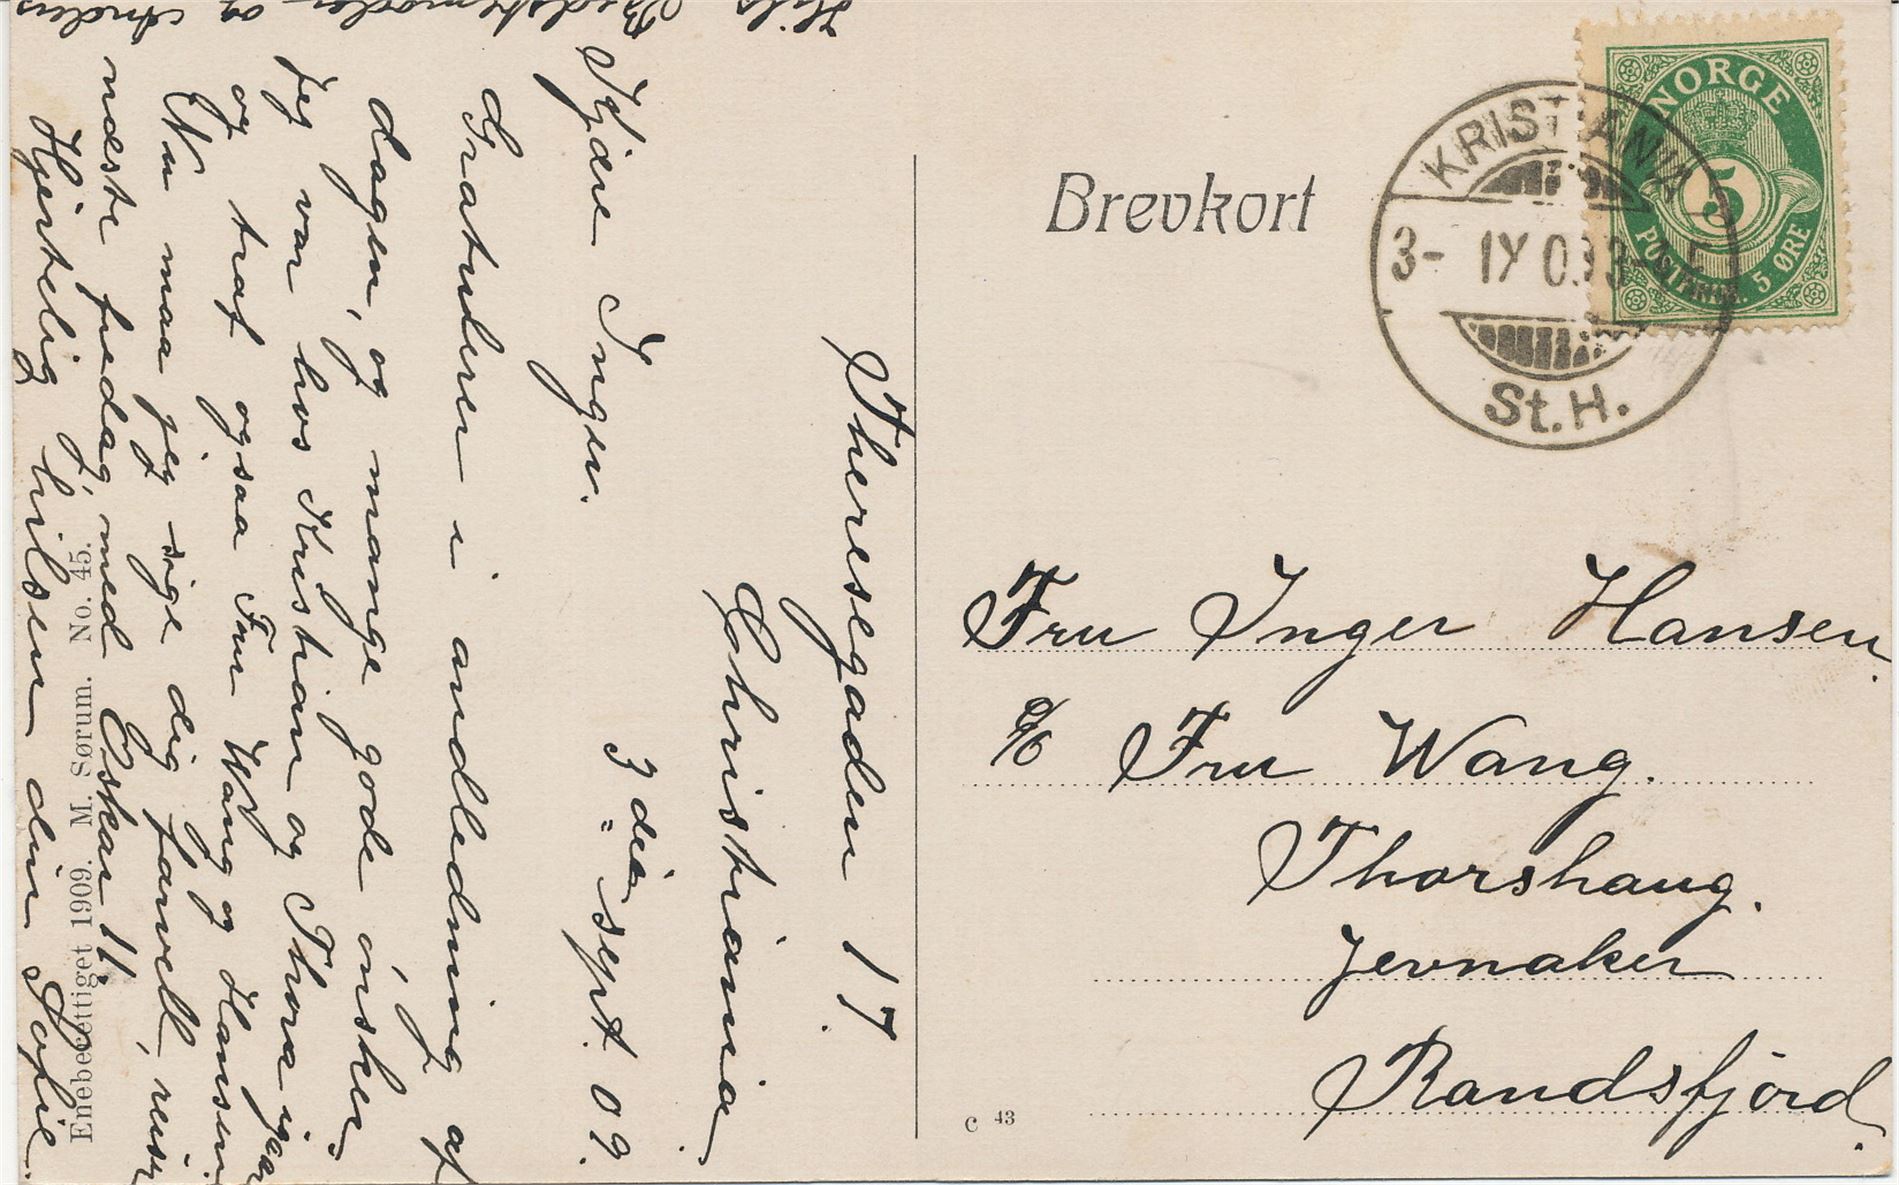 Theresegaden 17.
Christiania
3 die sept. 09.
Kjære Inger.
Gratulerer i andledning af
dagen, og mange gode ønsker.
Jeg var hos Kristian og Thora igaar
og traf ogsaa Fru Wang og Hansen.
Nu maa jeg sige dig farvell, reiser
næste fredag, med Oskar II.
Hjertelig hilsen din Sofie.
Hils
Bedstemoder og Anders
Enebecettiget 1909. M. Sørum. No. 45.
Brevkort
NORGE
5
POSTFRIM. 5 ØRE
KRISTIANIA
3- IX 09 3-
St. H.
Fru Inger Hansen.
c/o Fru Wang.
Thorshaug.
Jevnaker
Randsfjord.
C 43